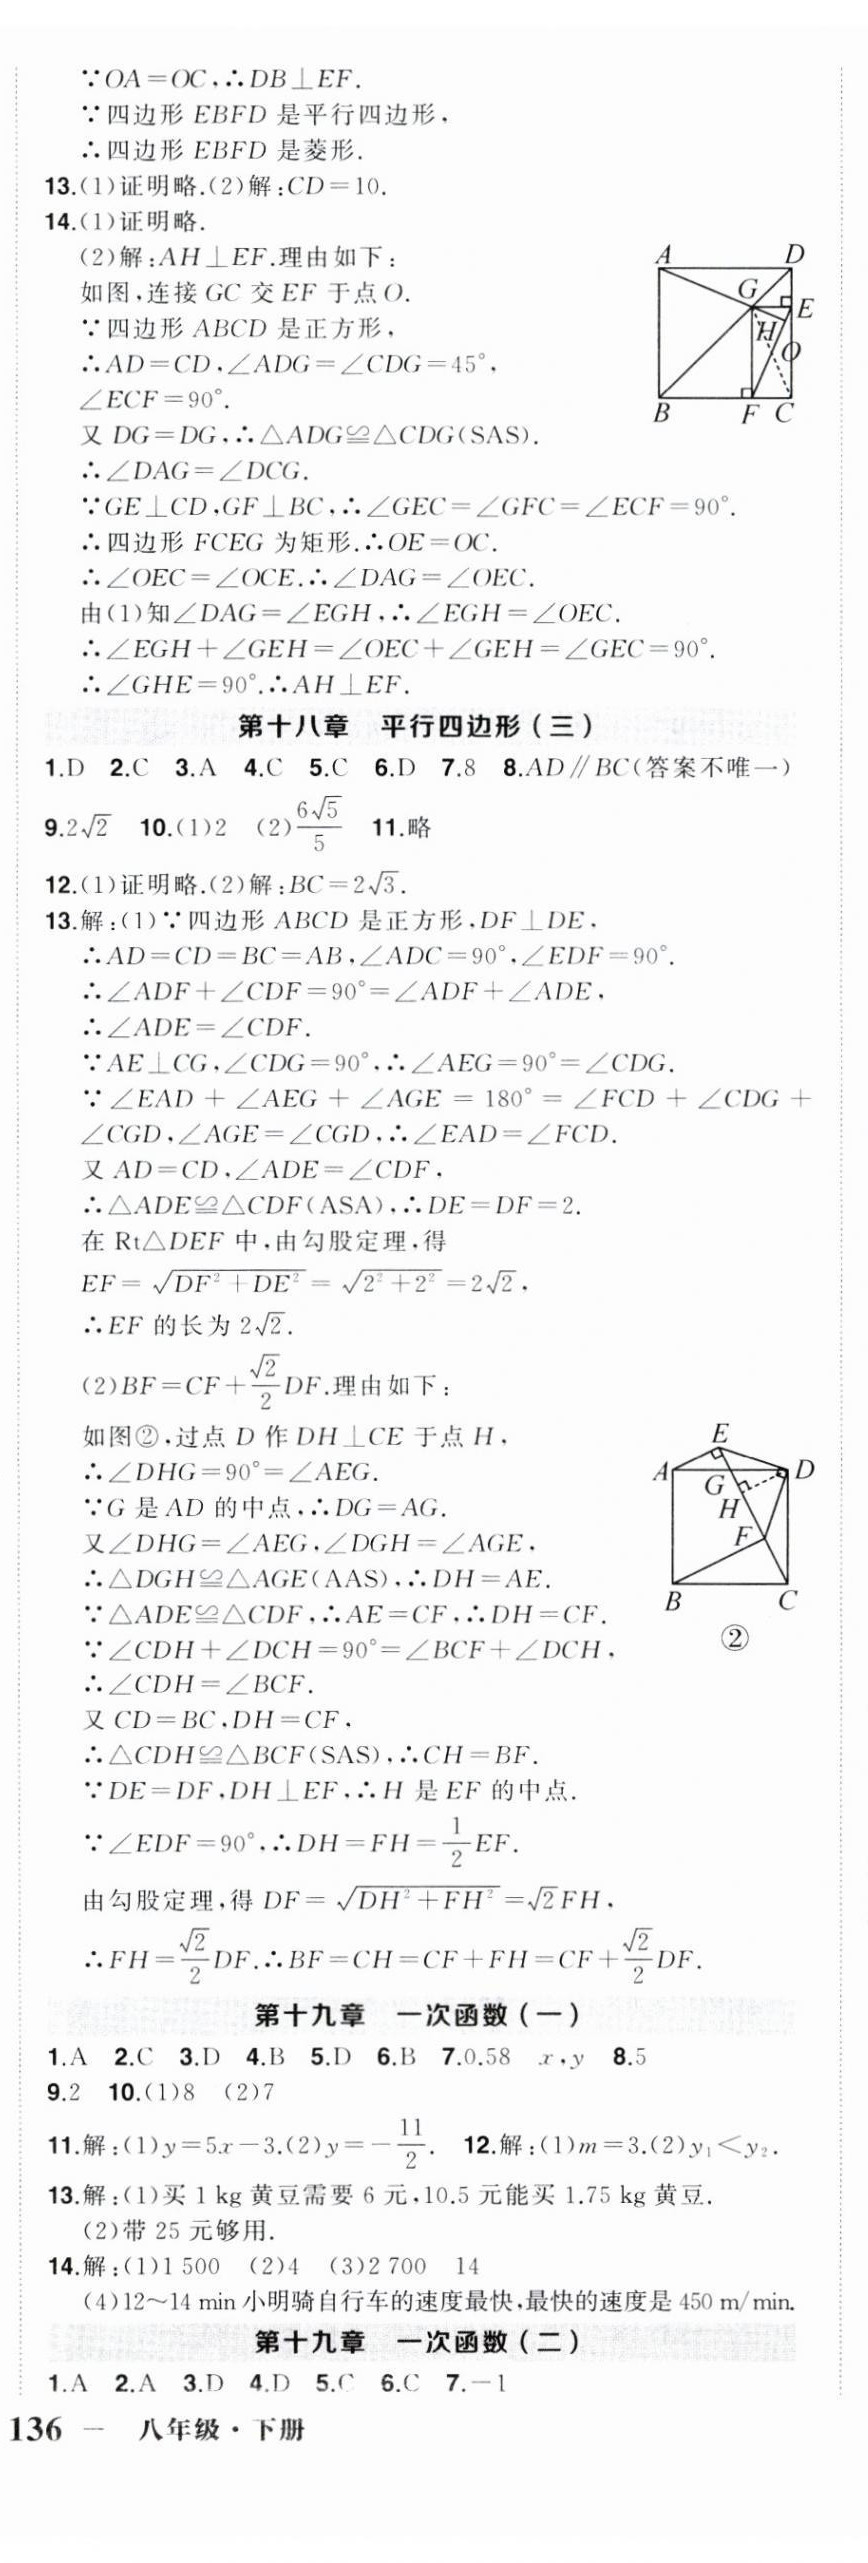 ∵OA=OC,∴DB⊥EF.
∵四边形 EBFD 是平行四边形,
∴四边形 EBFD 是菱形.
13.(1)证明略.(2)解:CD=10.
14.(1)证明略.
(2)解:AH⊥EF.理由如下:
如图,连接 GC 交 EF 于点 O.
∵四边形 ABCD 是正方形,
∴AD=CD,∠ADG=∠CDG=45°,
∠ECF=90°.
又 DG=DG,∴△ADG≌△CDG(SAS).
∴∠DAG=∠DCG.
∵GE⊥CD,GF⊥BC,∴∠GEC=∠GFC=∠ECF=90°.
∴四边形 FCEG 为矩形.∴OE=OC.
∴∠OEC=∠OCE.∴∠DAG=∠OEC.
由(1)知∠DAG=∠EGH,∴∠EGH=∠OEC.
∴∠EGH+∠GEH=∠OEC+∠GEH=∠GEC=90°.
∴∠GHE=90°.∴AH⊥EF.
A D
G E
H
O
B F C
第十八章 平行四边形(三)
1.D 2.C 3.A 4.C 5.C 6.D 7.8 8.AD∥BC(答案不唯一)
9.2√2 10.(1)2 (2)6√5/5 11.略
12.(1)证明略.(2)解:BC=2√3.
13.解:(1)∵四边形 ABCD 是正方形,DF⊥DE,
∴AD=CD=BC=AB,∠ADC=90°,∠EDF=90°.
∴∠ADF+∠CDF=90°=∠ADF+∠ADE,
∴∠ADE=∠CDF.
∵AE⊥CG,∠CDG=90°,∴∠AEG=90°=∠CDG.
∵∠EAD + ∠AEG + ∠AGE = 180° = ∠FCD + ∠CDG +
∠CGD,∠AGE=∠CGD,∴∠EAD=∠FCD.
又 AD=CD,∠ADE=∠CDF,
∴△ADE≌△CDF(ASA),∴DE=DF=2.
在 Rt△DEF 中,由勾股定理,得
EF=√(DF²+DE²)=√(2²+2²)=2√2,
∴EF 的长为 2√2.
(2)BF=CF+√2/2 DF.理由如下:
如图②,过点 D 作 DH⊥CE 于点 H,
∴∠DHG=90°=∠AEG.
∵G 是 AD 的中点,∴DG=AG.
又∠DHG=∠AEG,∠DGH=∠AGE,
∴△DGH≌△AGE(AAS),∴DH=AE.
∵△ADE≌△CDF,∴AE=CF,∴DH=CF.
∵∠CDH+∠DCH=90°=∠BCF+∠DCH,
∴∠CDH=∠BCF.
又 CD=BC,DH=CF,
∴△CDH≌△BCF(SAS),∴CH=BF.
∵DE=DF,DH⊥EF,∴H 是 EF 的中点.
∵∠EDF=90°,∴DH=FH=1/2 EF.
由勾股定理,得 DF=√(DH²+FH²)=√2FH,
∴FH=√2/2 DF.∴BF=CH=CF+FH=CF+√2/2 DF.
E
A D
G
H
F
B C
②
第十九章 一次函数(一)
1.A 2.C 3.D 4.B 5.D 6.B 7.0.58 x,y 8.5
9.2 10.(1)8 (2)7
11.解:(1)y=5x-3.(2)y=-11/2. 12.解:(1)m=3.(2)y₁<y₂.
13.解:(1)买 1 kg 黄豆需要 6 元,10.5 元能买 1.75 kg 黄豆.
(2)带 25 元够用.
14.解:(1)1 500 (2)4 (3)2 700 14
(4)12~14 min 小明骑自行车的速度最快,最快的速度是 450 m/min.
第十九章 一次函数(二)
1.A 2.A 3.D 4.D 5.C 6.C 7.-1
136 — 八年级·下册